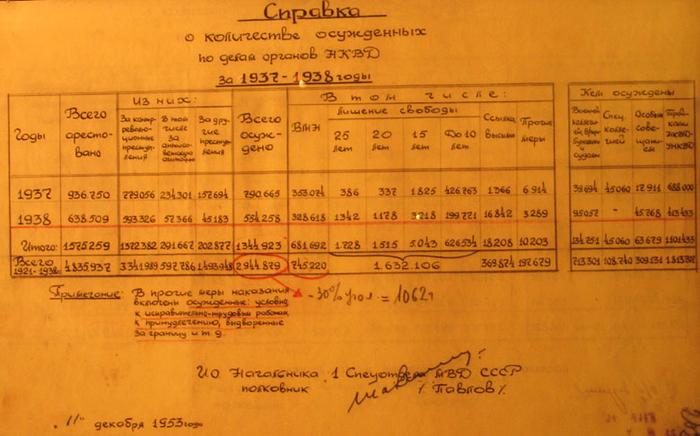 Справка
о количестве осужденных
по делам органов НКВД
за 1937-1938 годы
Годы Всего аресто-вано Из них: За контр-революционные преступления В том числе за антисоветскую агитацию За другие преступления Всего осуж-дено В том числе: ВМН лишение свободы 25 лет 20 лет 15 лет До 10 лет Ссылка высылка Прочие меры Кем осуждены Спец. коллегией Особым совещанием
1937 936.750 779.056 234.301 157.694 790.665 353.074 386 337 1825 426.763 1.366 6.914 39.694 45.060 17.911 688.000
1938 638.509 593.326 57.366 45.183 554.258 328.618 1342 1178 3.218 199.771 16.842 3.289 95.057 - 45.768 413.433
Итого: 1.575.259 1.372.382 291.667 202.877 1.344.923 681.692 1.728 1.515 5.043 626.534 18.208 10.203 134.751 45.060 63.679 1.101.433
Всего 1921-1938 4.835.937 3.341.989 1.493.948 2.944.879 745.220 1.632.106 369.874 197.679 713.301 108.740 309.131 1.813.707
Примечание: В прочие меры наказания - 30% угол. = 1062т
включены осужденные: условно,
к исправительно-трудовым работам,
к принудлечению, выдворенные
за границу и т.д.
ИО Начальника 1 Спецотдела МВД СССР
полковник /Павлов/
„11" декабря 1953 года